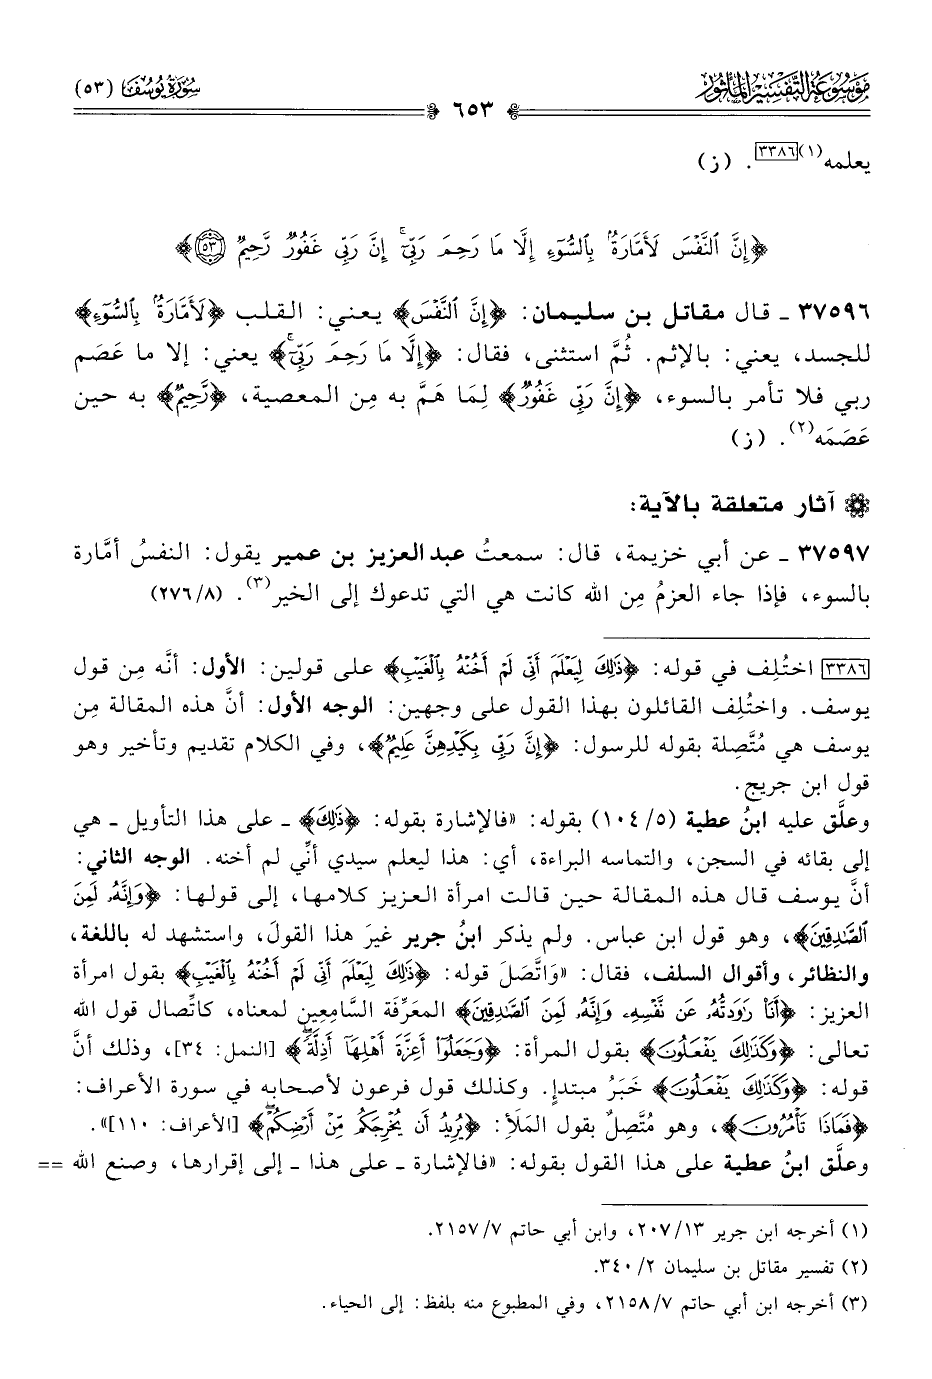 موسوعة التفسير المأثور
سورة يوسف (٥٣)
٦٥٣
يعلمه(١)[٣٣٨٦]. (ز)
﴿إِنَّ ٱلنَّفۡسَ لَأَمَّارَةُۢ بِٱلسُّوٓءِ إِلَّا مَا رَحِمَ رَبِّيٓۚ إِنَّ رَبِّي غَفُورٞ رَّحِيمٞ ٥٣﴾
٣٧٥٩٦ ـ قال مقاتل بن سليمان: ﴿إِنَّ ٱلنَّفۡسَ﴾ يعني: القلب ﴿لَأَمَّارَةُۢ بِٱلسُّوٓءِ﴾
للجسد، يعني: بالإثم. ثُمَّ استثنى، فقال: ﴿إِلَّا مَا رَحِمَ رَبِّيٓۚ﴾ يعني: إلا ما عَصَم
ربي فلا تأمر بالسوء، ﴿إِنَّ رَبِّي غَفُورٞ﴾ لِمَا هَمَّ به مِن المعصية، ﴿رَّحِيمٞ﴾ به حين
عَصَمَه(٢). (ز)
آثار متعلقة بالآية:
٣٧٥٩٧ ـ عن أبي خزيمة، قال: سمعتُ عبد العزيز بن عمير يقول: النفسُ أمَّارة
بالسوء، فإذا جاء العزمُ مِن الله كانت هي التي تدعوك إلى الخير(٣). (٢٧٦/٨)
[٣٣٨٦] اختُلِف في قوله: ﴿ذَٰلِكَ لِيَعۡلَمَ أَنِّي لَمۡ أَخُنۡهُ بِٱلۡغَيۡبِ﴾ على قولين: الأول: أنَّه مِن قول
يوسف. واختُلِف القائلون بهذا القول على وجهين: الوجه الأول: أنَّ هذه المقالة مِن
يوسف هي مُتَّصِلة بقوله للرسول: ﴿إِنَّ رَبِّي بِكَيۡدِهِنَّ عَلِيمٞ﴾، وفي الكلام تقديم وتأخير وهو
قول ابن جريج.
وعلَّق عليه ابنُ عطية (١٠٤/٥) بقوله: «فالإشارة بقوله: ﴿ذَٰلِكَ﴾ ـ على هذا التأويل ـ هي
إلى بقائه في السجن، والتماسه البراءة، أي: هذا ليعلم سيدي أنِّي لم أخنه. الوجه الثاني:
أنَّ يوسف قال هذه المقالة حين قالت امرأة العزيز كلامها، إلى قولها: ﴿وَإِنَّهُۥ لَمِنَ
ٱلصَّٰدِقِينَ﴾، وهو قول ابن عباس. ولم يذكر ابنُ جرير غيرَ هذا القولَ، واستشهد له باللغة،
والنظائر، وأقوال السلف، فقال: «وَاتَّصَلَ قوله: ﴿ذَٰلِكَ لِيَعۡلَمَ أَنِّي لَمۡ أَخُنۡهُ بِٱلۡغَيۡبِ﴾ بقول امرأة
العزيز: ﴿أَنَا۠ رَٰوَدتُّهُۥ عَن نَّفۡسِهِۦ وَإِنَّهُۥ لَمِنَ ٱلصَّٰدِقِينَ﴾ المعَرِّفَة السَّامِعِين لمعناه، كاتِّصال قول الله
تعالى: ﴿وَكَذَٰلِكَ يَفۡعَلُونَ﴾ بقول المرأة: ﴿وَجَعَلُوٓاْ أَعِزَّةَ أَهۡلِهَآ أَذِلَّةٗۚ﴾ [النمل: ٣٤]، وذلك أنَّ
قوله: ﴿وَكَذَٰلِكَ يَفۡعَلُونَ﴾ خَبَرُ مبتدإٍ. وكذلك قول فرعون لأصحابه في سورة الأعراف:
﴿فَمَاذَا تَأۡمُرُونَ﴾، وهو مُتَّصِلٌ بقول المَلَأِ: ﴿يُرِيدُ أَن يُخۡرِجَكُم مِّنۡ أَرۡضِكُمۡۖ﴾ [الأعراف: ١١٠]».
وعلَّق ابنُ عطية على هذا القول بقوله: «فالإشارة ـ على هذا ـ إلى إقرارها، وصنع الله ==
(١) أخرجه ابن جرير ٢٠٧/١٣، وابن أبي حاتم ٢١٥٧/٧.
(٢) تفسير مقاتل بن سليمان ٣٤٠/٢.
(٣) أخرجه ابن أبي حاتم ٢١٥٨/٧، وفي المطبوع منه بلفظ: إلى الحياء.